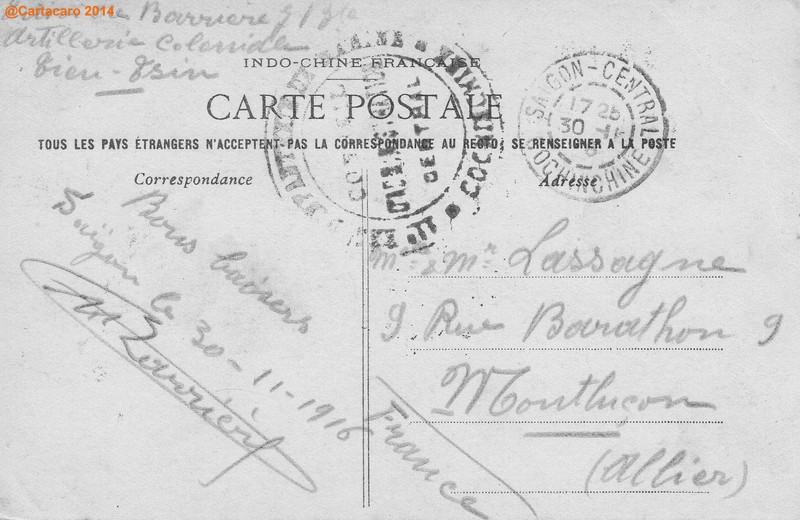 @Cartacaro 2014
Barrière
Artillerie Coloniale
Tien-Tsin
INDO-CHINE FRANÇAISE
CARTE POSTALE
TOUS LES PAYS ÉTRANGERS N'ACCEPTENT PAS LA CORRESPONDANCE AU RECTO; SE RENSEIGNER A LA POSTE
Correspondance
Adresse
SAIGON-CENTRAL
17
30
COCHINCHINE
COCHINCHINE
Bons baisers
Saïgon le 30-11-1916
Barrière
Mme & Mr Lassagne
9 Rue Barathon 9
Montluçon
(Allier)
France